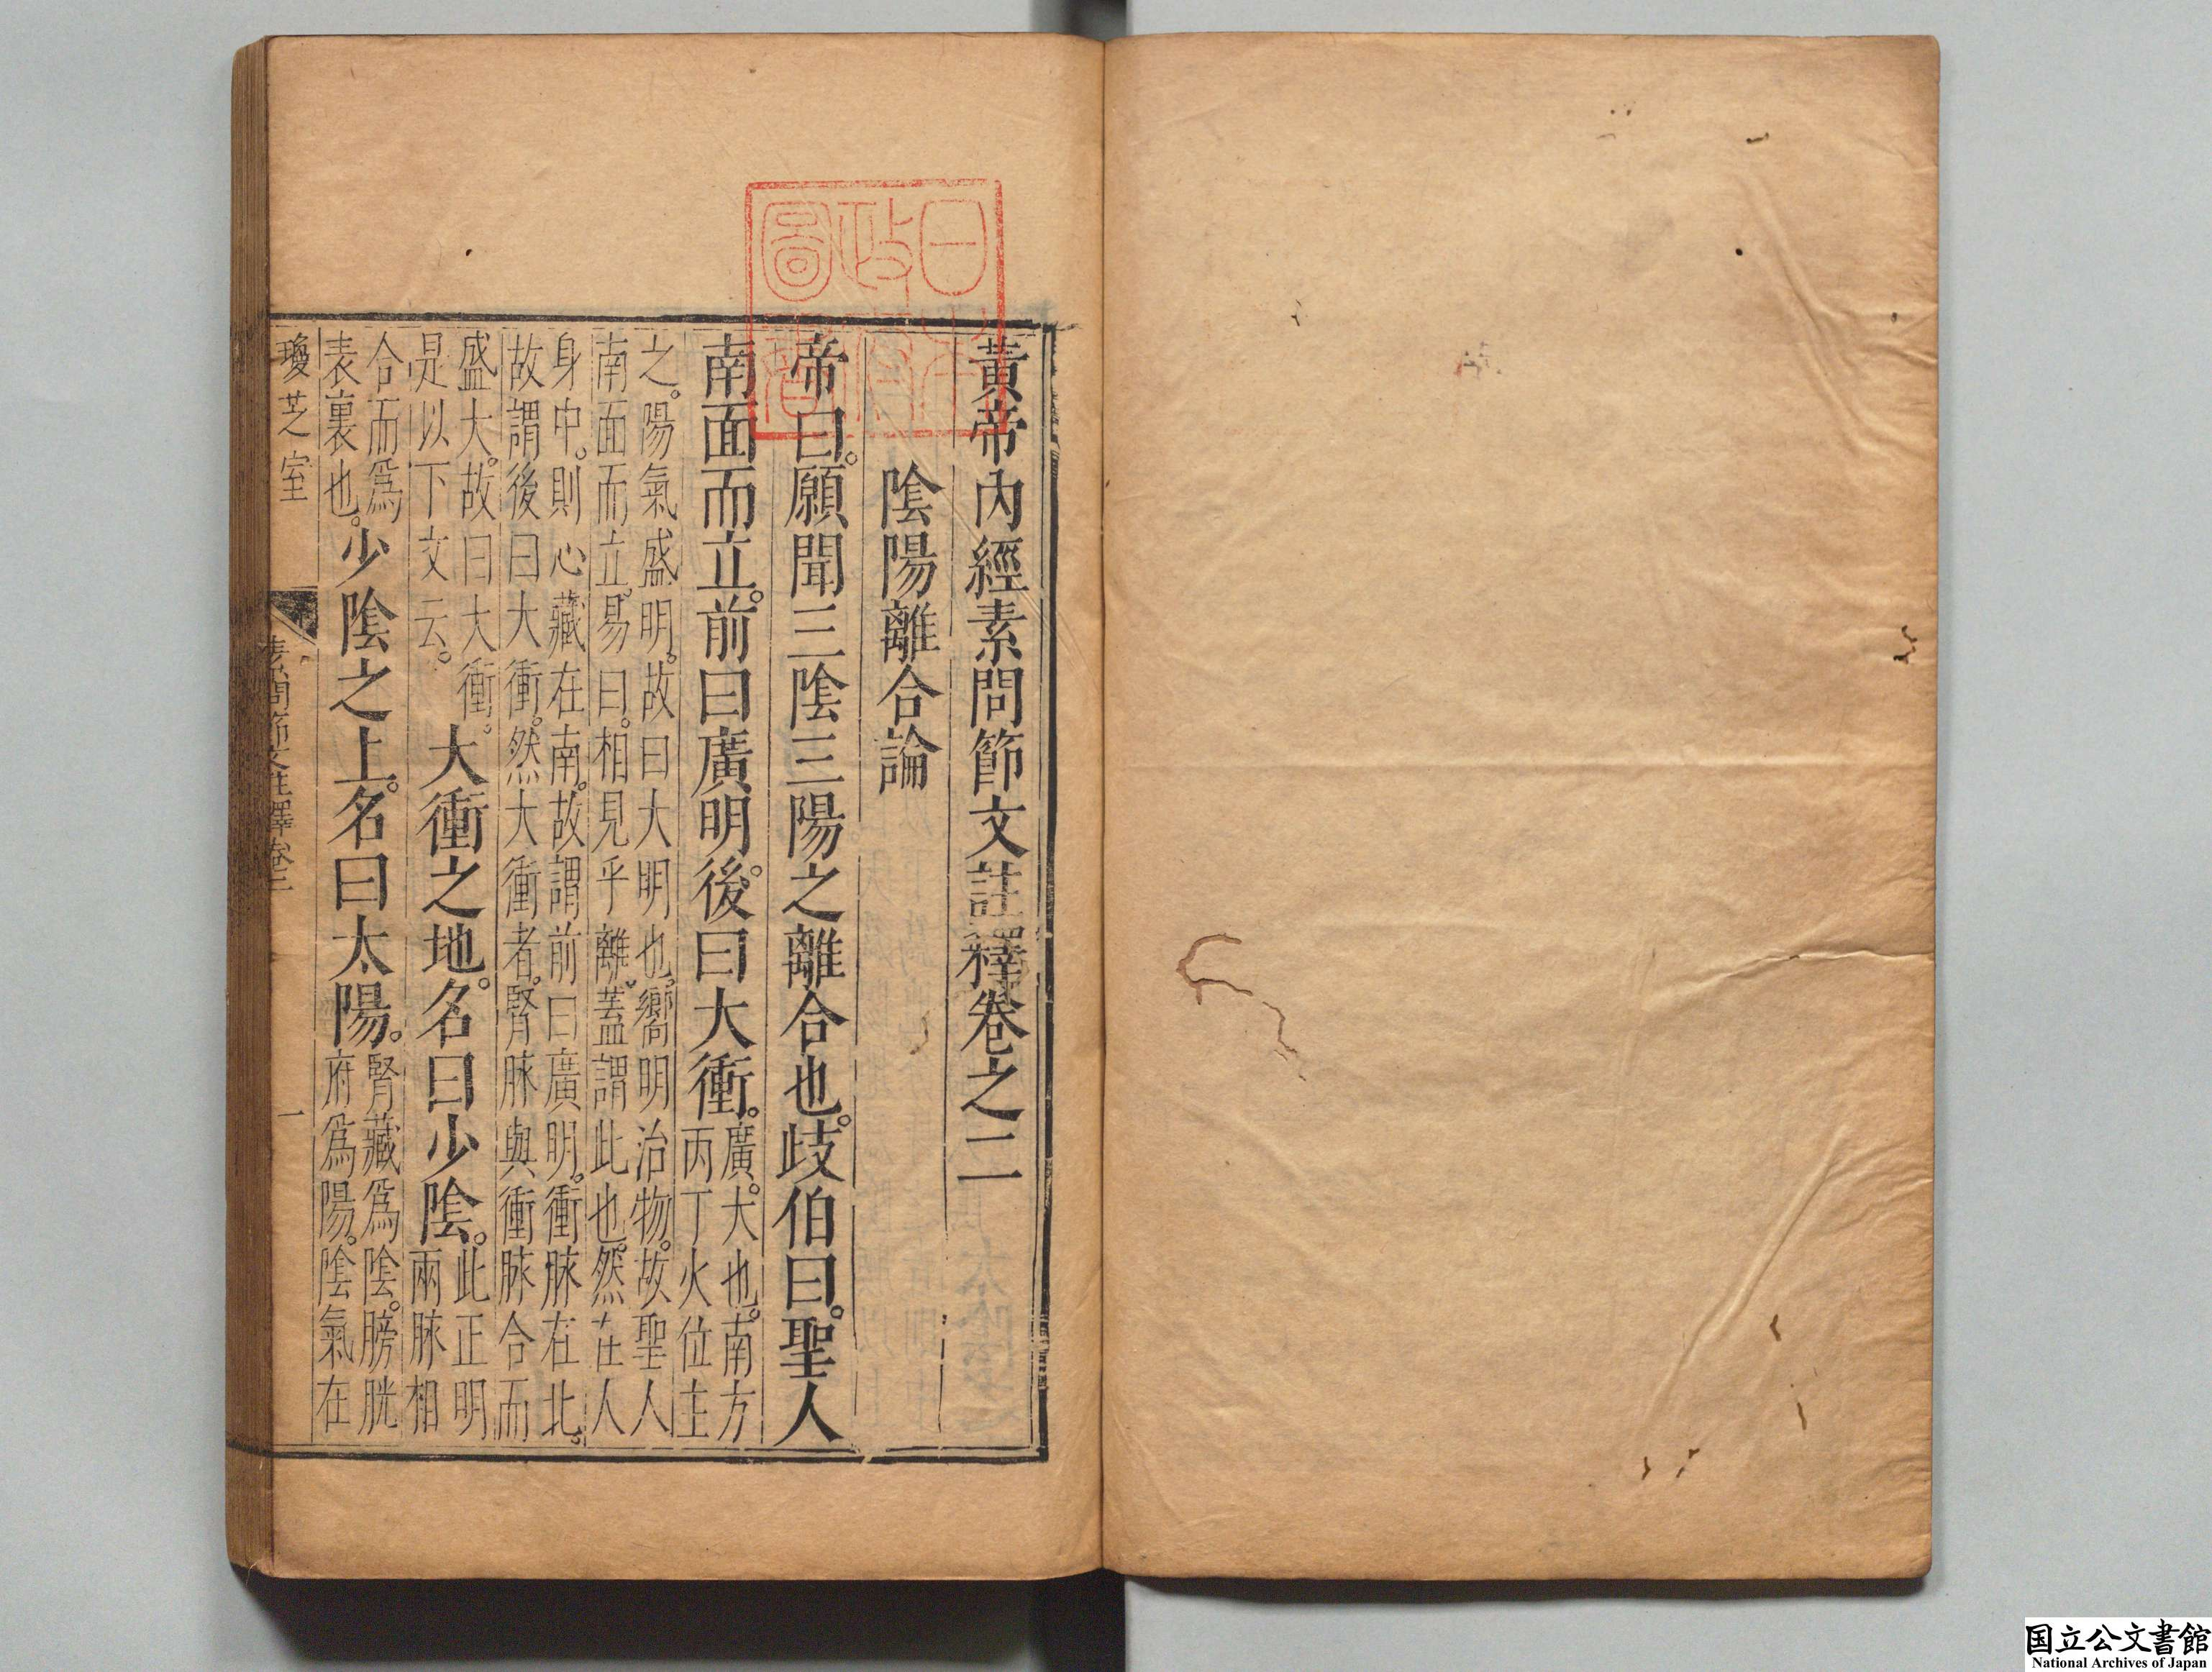 黃帝內經素問節文註釋卷之二
陰陽離合論
帝曰。願聞三陰三陽之離合也。歧伯曰。聖人
南面而立。前曰廣明。後曰大衝。廣。大也。南方
丙丁火位主
之。陽氣盛明。故曰大明也。嚮明治物。故聖人
南面而立。易曰。相見乎離。蓋謂此也。然在人
身中。則心藏在南。故謂前曰廣明。衝脉在北。
故謂後曰大衝。然大衝者。腎脉與衝脉合而
盛大。故曰大衝。
是以下文云。
大衝之地。名曰少陰。此正明
兩脉相
合而爲
表裏也。
少陰之上。名曰太陽。腎藏爲陰。膀胱
府爲陽。陰氣在
瓊芝室
素問節文註釋卷二
一
日本
政府
圖書
国立公文書館
National Archives of Japan